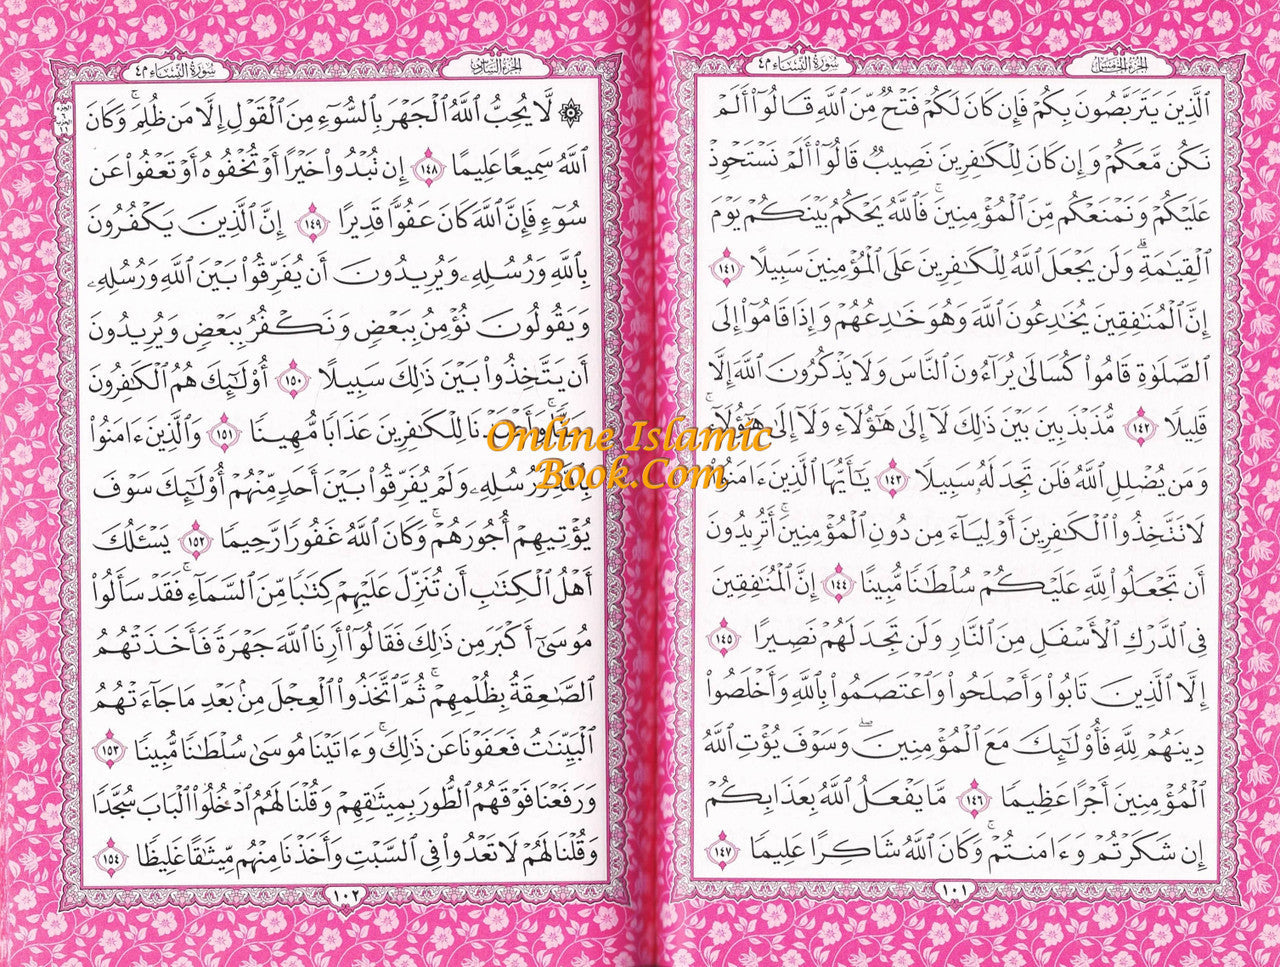 الجزء الخامس
سورة النساء ٤
الَّذِينَ يَتَرَبَّصُونَ بِكُمْ فَإِن كَانَ لَكُمْ فَتْحٌ مِّنَ ٱللَّهِ قَالُوٓا۟ أَلَمْ
نَكُن مَّعَكُمْ وَإِن كَانَ لِلْكَـٰفِرِينَ نَصِيبٌ قَالُوٓا۟ أَلَمْ نَسْتَحْوِذْ
عَلَيْكُمْ وَنَمْنَعْكُم مِّنَ ٱلْمُؤْمِنِينَ ۚ فَٱللَّهُ يَحْكُمُ بَيْنَكُمْ يَوْمَ
ٱلْقِيَـٰمَةِ ۗ وَلَن يَجْعَلَ ٱللَّهُ لِلْكَـٰفِرِينَ عَلَى ٱلْمُؤْمِنِينَ سَبِيلًا ١٤١
إِنَّ ٱلْمُنَـٰفِقِينَ يُخَـٰدِعُونَ ٱللَّهَ وَهُوَ خَـٰدِعُهُمْ وَإِذَا قَامُوٓا۟ إِلَى
ٱلصَّلَوٰةِ قَامُوا۟ كُسَالَىٰ يُرَآءُونَ ٱلنَّاسَ وَلَا يَذْكُرُونَ ٱللَّهَ إِلَّا
قَلِيلًا ١٤٢ مُّذَبْذَبِينَ بَيْنَ ذَٰلِكَ لَآ إِلَىٰ هَـٰٓؤُلَآءِ وَلَآ إِلَىٰ هَـٰٓؤُلَآءِ ۚ
وَمَن يُضْلِلِ ٱللَّهُ فَلَن تَجِدَ لَهُۥ سَبِيلًا ١٤٣ يَـٰٓأَيُّهَا ٱلَّذِينَ ءَامَنُوا۟
لَا تَتَّخِذُوا۟ ٱلْكَـٰفِرِينَ أَوْلِيَآءَ مِن دُونِ ٱلْمُؤْمِنِينَ ۚ أَتُرِيدُونَ
أَن تَجْعَلُوا۟ لِلَّهِ عَلَيْكُمْ سُلْطَـٰنًا مُّبِينًا ١٤٤ إِنَّ ٱلْمُنَـٰفِقِينَ
فِى ٱلدَّرْكِ ٱلْأَسْفَلِ مِنَ ٱلنَّارِ وَلَن تَجِدَ لَهُمْ نَصِيرًا ١٤٥
إِلَّا ٱلَّذِينَ تَابُوا۟ وَأَصْلَحُوا۟ وَٱعْتَصَمُوا۟ بِٱللَّهِ وَأَخْلَصُوا۟
دِينَهُمْ لِلَّهِ فَأُو۟لَـٰٓئِكَ مَعَ ٱلْمُؤْمِنِينَ ۖ وَسَوْفَ يُؤْتِ ٱللَّهُ
ٱلْمُؤْمِنِينَ أَجْرًا عَظِيمًا ١٤٦ مَّا يَفْعَلُ ٱللَّهُ بِعَذَابِكُمْ
إِن شَكَرْتُمْ وَءَامَنتُمْ ۚ وَكَانَ ٱللَّهُ شَاكِرًا عَلِيمًا ١٤٧
١٠١
الجزء السادس
سورة النساء ٤
۞ لَّا يُحِبُّ ٱللَّهُ ٱلْجَهْرَ بِٱلسُّوٓءِ مِنَ ٱلْقَوْلِ إِلَّا مَن ظُلِمَ ۚ وَكَانَ
ٱللَّهُ سَمِيعًا عَلِيمًا ١٤٨ إِن تُبْدُوا۟ خَيْرًا أَوْ تُخْفُوهُ أَوْ تَعْفُوا۟ عَن
سُوٓءٍ فَإِنَّ ٱللَّهَ كَانَ عَفُوًّا قَدِيرًا ١٤٩ إِنَّ ٱلَّذِينَ يَكْفُرُونَ
بِٱللَّهِ وَرُسُلِهِۦ وَيُرِيدُونَ أَن يُفَرِّقُوا۟ بَيْنَ ٱللَّهِ وَرُسُلِهِۦ
وَيَقُولُونَ نُؤْمِنُ بِبَعْضٍ وَنَكْفُرُ بِبَعْضٍ وَيُرِيدُونَ
أَن يَتَّخِذُوا۟ بَيْنَ ذَٰلِكَ سَبِيلًا ١٥٠ أُو۟لَـٰٓئِكَ هُمُ ٱلْكَـٰفِرُونَ
حَقًّا ۚ وَأَعْتَدْنَا لِلْكَـٰفِرِينَ عَذَابًا مُّهِينًا ١٥١ وَٱلَّذِينَ ءَامَنُوا۟
بِٱللَّهِ وَرُسُلِهِۦ وَلَمْ يُفَرِّقُوا۟ بَيْنَ أَحَدٍ مِّنْهُمْ أُو۟لَـٰٓئِكَ سَوْفَ
يُؤْتِيهِمْ أُجُورَهُمْ ۗ وَكَانَ ٱللَّهُ غَفُورًا رَّحِيمًا ١٥٢ يَسْـَٔلُكَ
أَهْلُ ٱلْكِتَـٰبِ أَن تُنَزِّلَ عَلَيْهِمْ كِتَـٰبًا مِّنَ ٱلسَّمَآءِ ۚ فَقَدْ سَأَلُوا۟
مُوسَىٰٓ أَكْبَرَ مِن ذَٰلِكَ فَقَالُوٓا۟ أَرِنَا ٱللَّهَ جَهْرَةً فَأَخَذَتْهُمُ
ٱلصَّـٰعِقَةُ بِظُلْمِهِمْ ۚ ثُمَّ ٱتَّخَذُوا۟ ٱلْعِجْلَ مِنۢ بَعْدِ مَا جَآءَتْهُمُ
ٱلْبَيِّنَـٰتُ فَعَفَوْنَا عَن ذَٰلِكَ ۚ وَءَاتَيْنَا مُوسَىٰ سُلْطَـٰنًا مُّبِينًا ١٥٣
وَرَفَعْنَا فَوْقَهُمُ ٱلطُّورَ بِمِيثَـٰقِهِمْ وَقُلْنَا لَهُمُ ٱدْخُلُوا۟ ٱلْبَابَ سُجَّدًا
وَقُلْنَا لَهُمْ لَا تَعْدُوا۟ فِى ٱلسَّبْتِ وَأَخَذْنَا مِنْهُم مِّيثَـٰقًا غَلِيظًا ١٥٤
١٠٢
Online Islamic
Book.Com